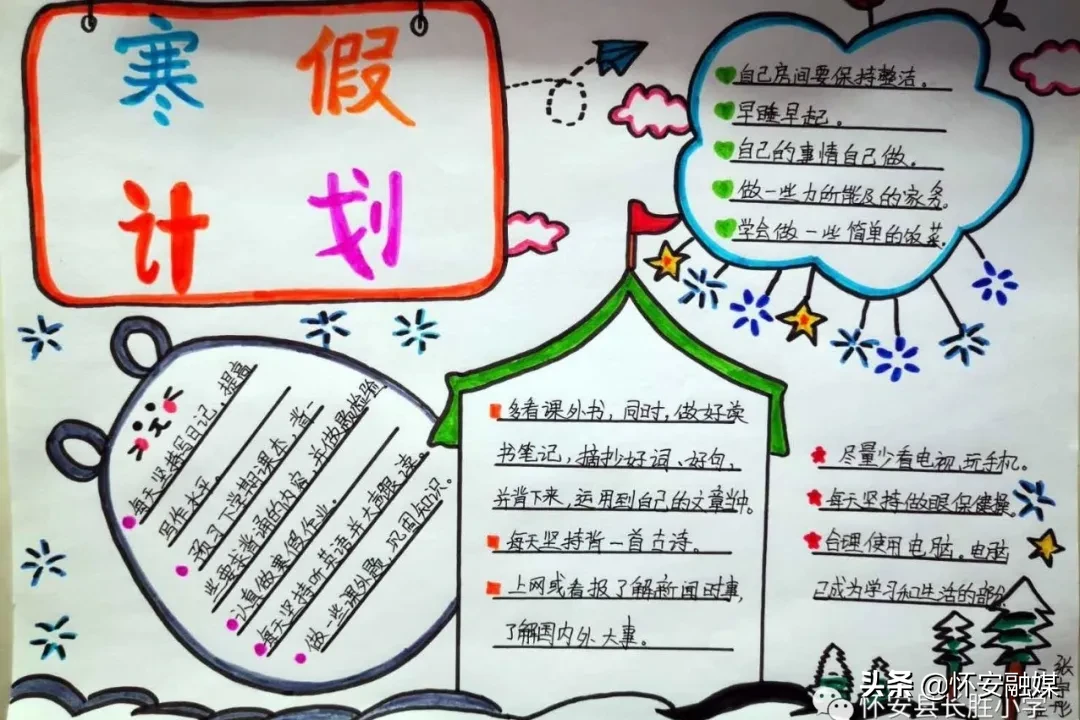 寒假
计划
自己房间要保持整洁。
早睡早起。
自己的事情自己做。
做一些力所能及的家务。
学会做一些简单的饭菜。
每天坚持写日记，提高
写作水平。
预习下学期课本，背一
些要求背诵的内容，并做题检验
认真做寒假作业。
每天坚持听英语并大声跟读。
做一些课外题，巩固知识。
多看课外书，同时，做好读
书笔记，摘抄好词、好句，
并背下来，运用到自己的文章当中。
每天坚持背一首古诗。
上网或看报了解新闻时事，
了解国内外大事。
尽量少看电视，玩手机。
每天坚持做眼保健操。
合理使用电脑。电脑
已成为学习和生活的部分
头条@怀安融媒
怀安县长胜小学